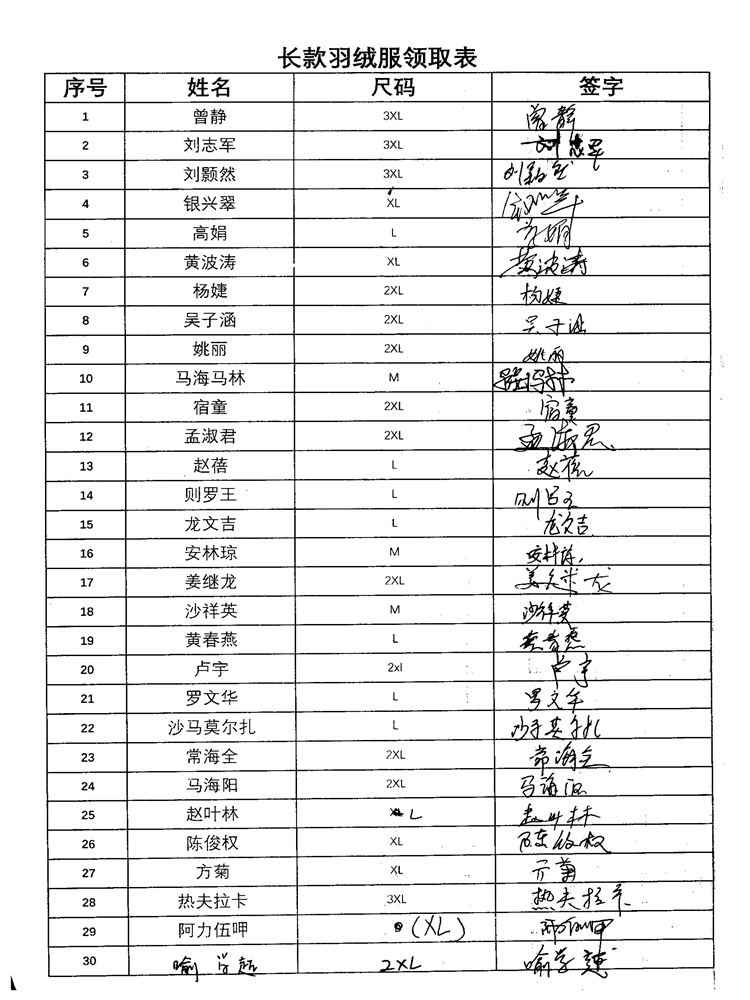 长款羽绒服领取表
序号 姓名 尺码 签字
1 曾静 3XL 曾静
2 刘志军 3XL 刘志军
3 刘颢然 3XL
4 银兴翠 XL
5 高娟 L 高娟
6 黄波涛 XL 黄波涛
7 杨婕 2XL 杨婕
8 吴子涵 2XL 吴子涵
9 姚丽 2XL 姚丽
10 马海马林 M
11 宿童 2XL 宿童
12 孟淑君 2XL 孟淑君
13 赵蓓 L 赵蓓
14 则罗王 L 则罗王
15 龙文吉 L 龙文吉
16 安林琼 M 安林琼
17 姜继龙 2XL 姜继龙
18 沙祥英 M 沙祥英
19 黄春燕 L 黄春燕
20 卢宇 2xl 卢宇
21 罗文华 L 罗文华
22 沙马莫尔扎 L
23 常海全 2XL 常海全
24 马海阳 2XL 马海阳
25 赵叶林 L 赵叶林
26 陈俊权 XL 陈俊权
27 方菊 XL 方菊
28 热夫拉卡 3XL 热夫拉卡
29 阿力伍呷 (XL)
30 喻学超 2XL